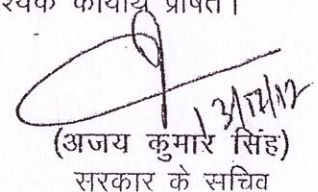 श्यक कार्यार्थ प्रेषित।
13/12/12
(अजय कुमार सिंह)
सरकार के सचिव